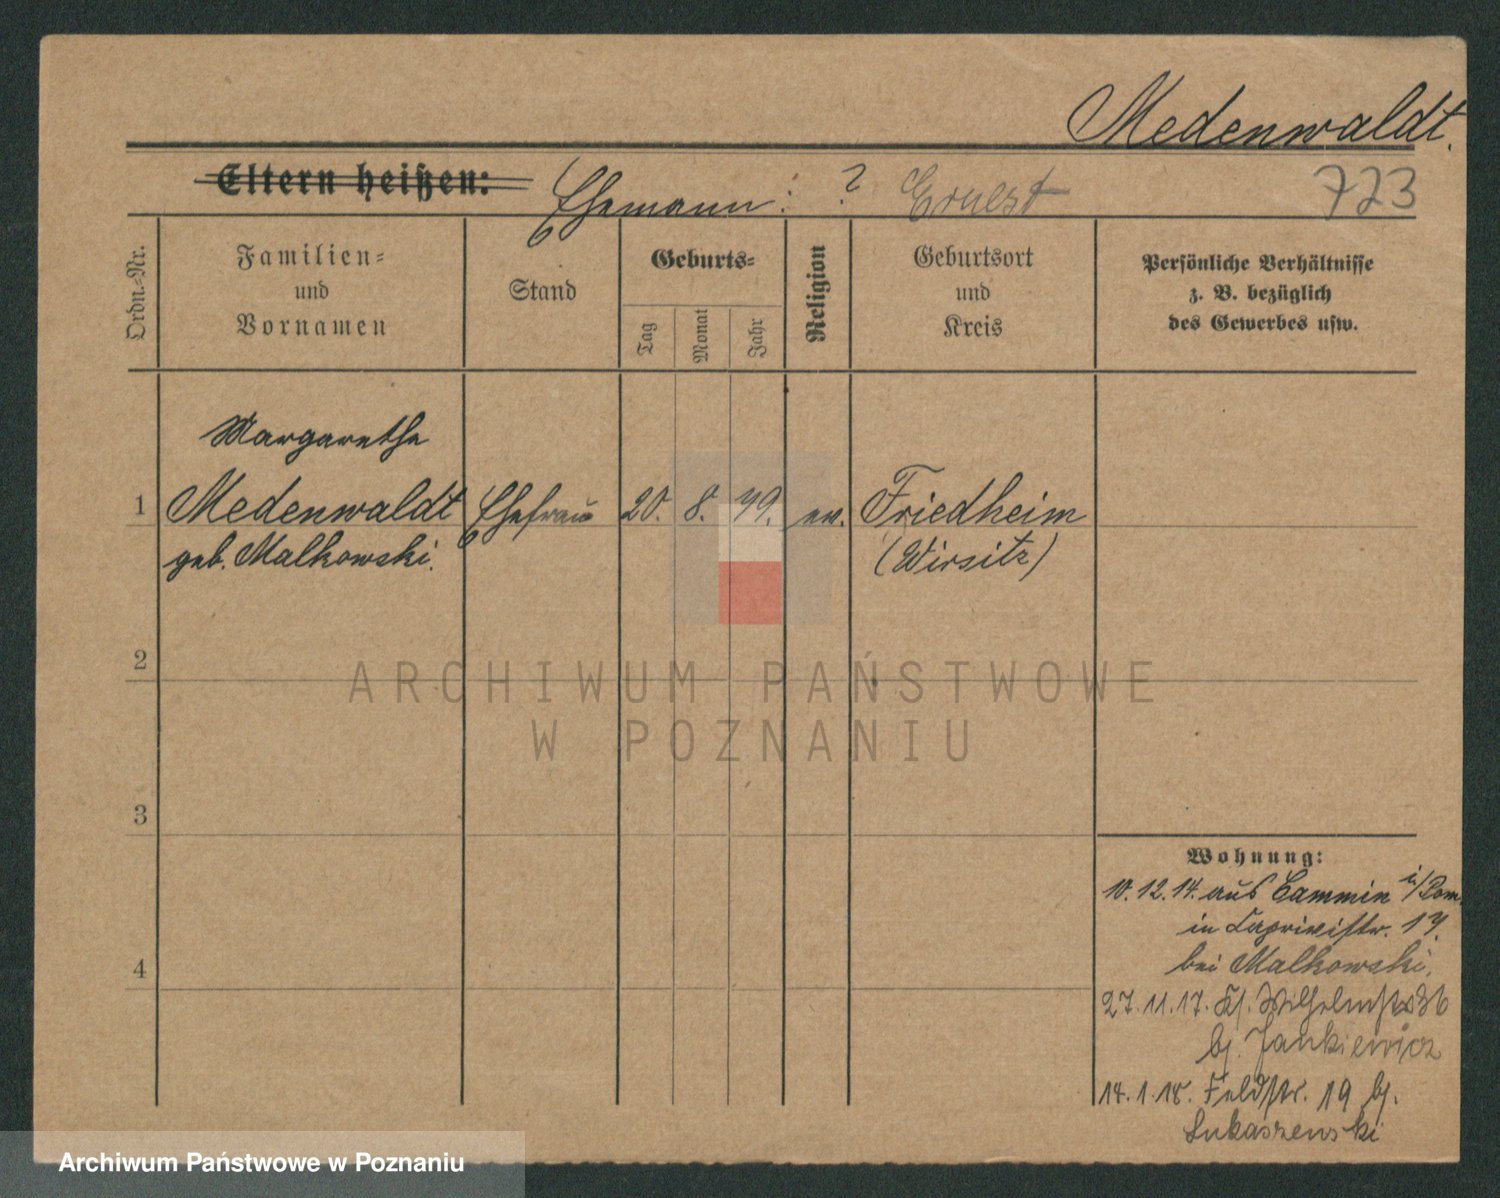 Medenwaldt.
Eltern heißen: Ehemann: ? Ernest 723
Ordn.-Nr.
Familien-
und
Vornamen
Stand
Geburts-
Tag
Monat
Jahr
Religion
Geburtsort
und
Kreis
Persönliche Verhältnisse
z. B. bezüglich
des Gewerbes usw.
Margarethe
1 Medenwaldt Ehefrau 20. 8. 79. ev. Friedheim
geb. Malkowski. (Wirsitz)
2
3
4
ARCHIWUM PAŃSTWOWE
W POZNANIU
Wohnung:
10.12.14. aus Cammin i/Pom.
in Caprivistr. 17.
bei Malkowski.
27.11.17. Kl. Wilhelmstr 36
bj. Jankiewicz
14.1.18. Feldstr. 19 bj.
Lukaszewski
Archiwum Państwowe w Poznaniu